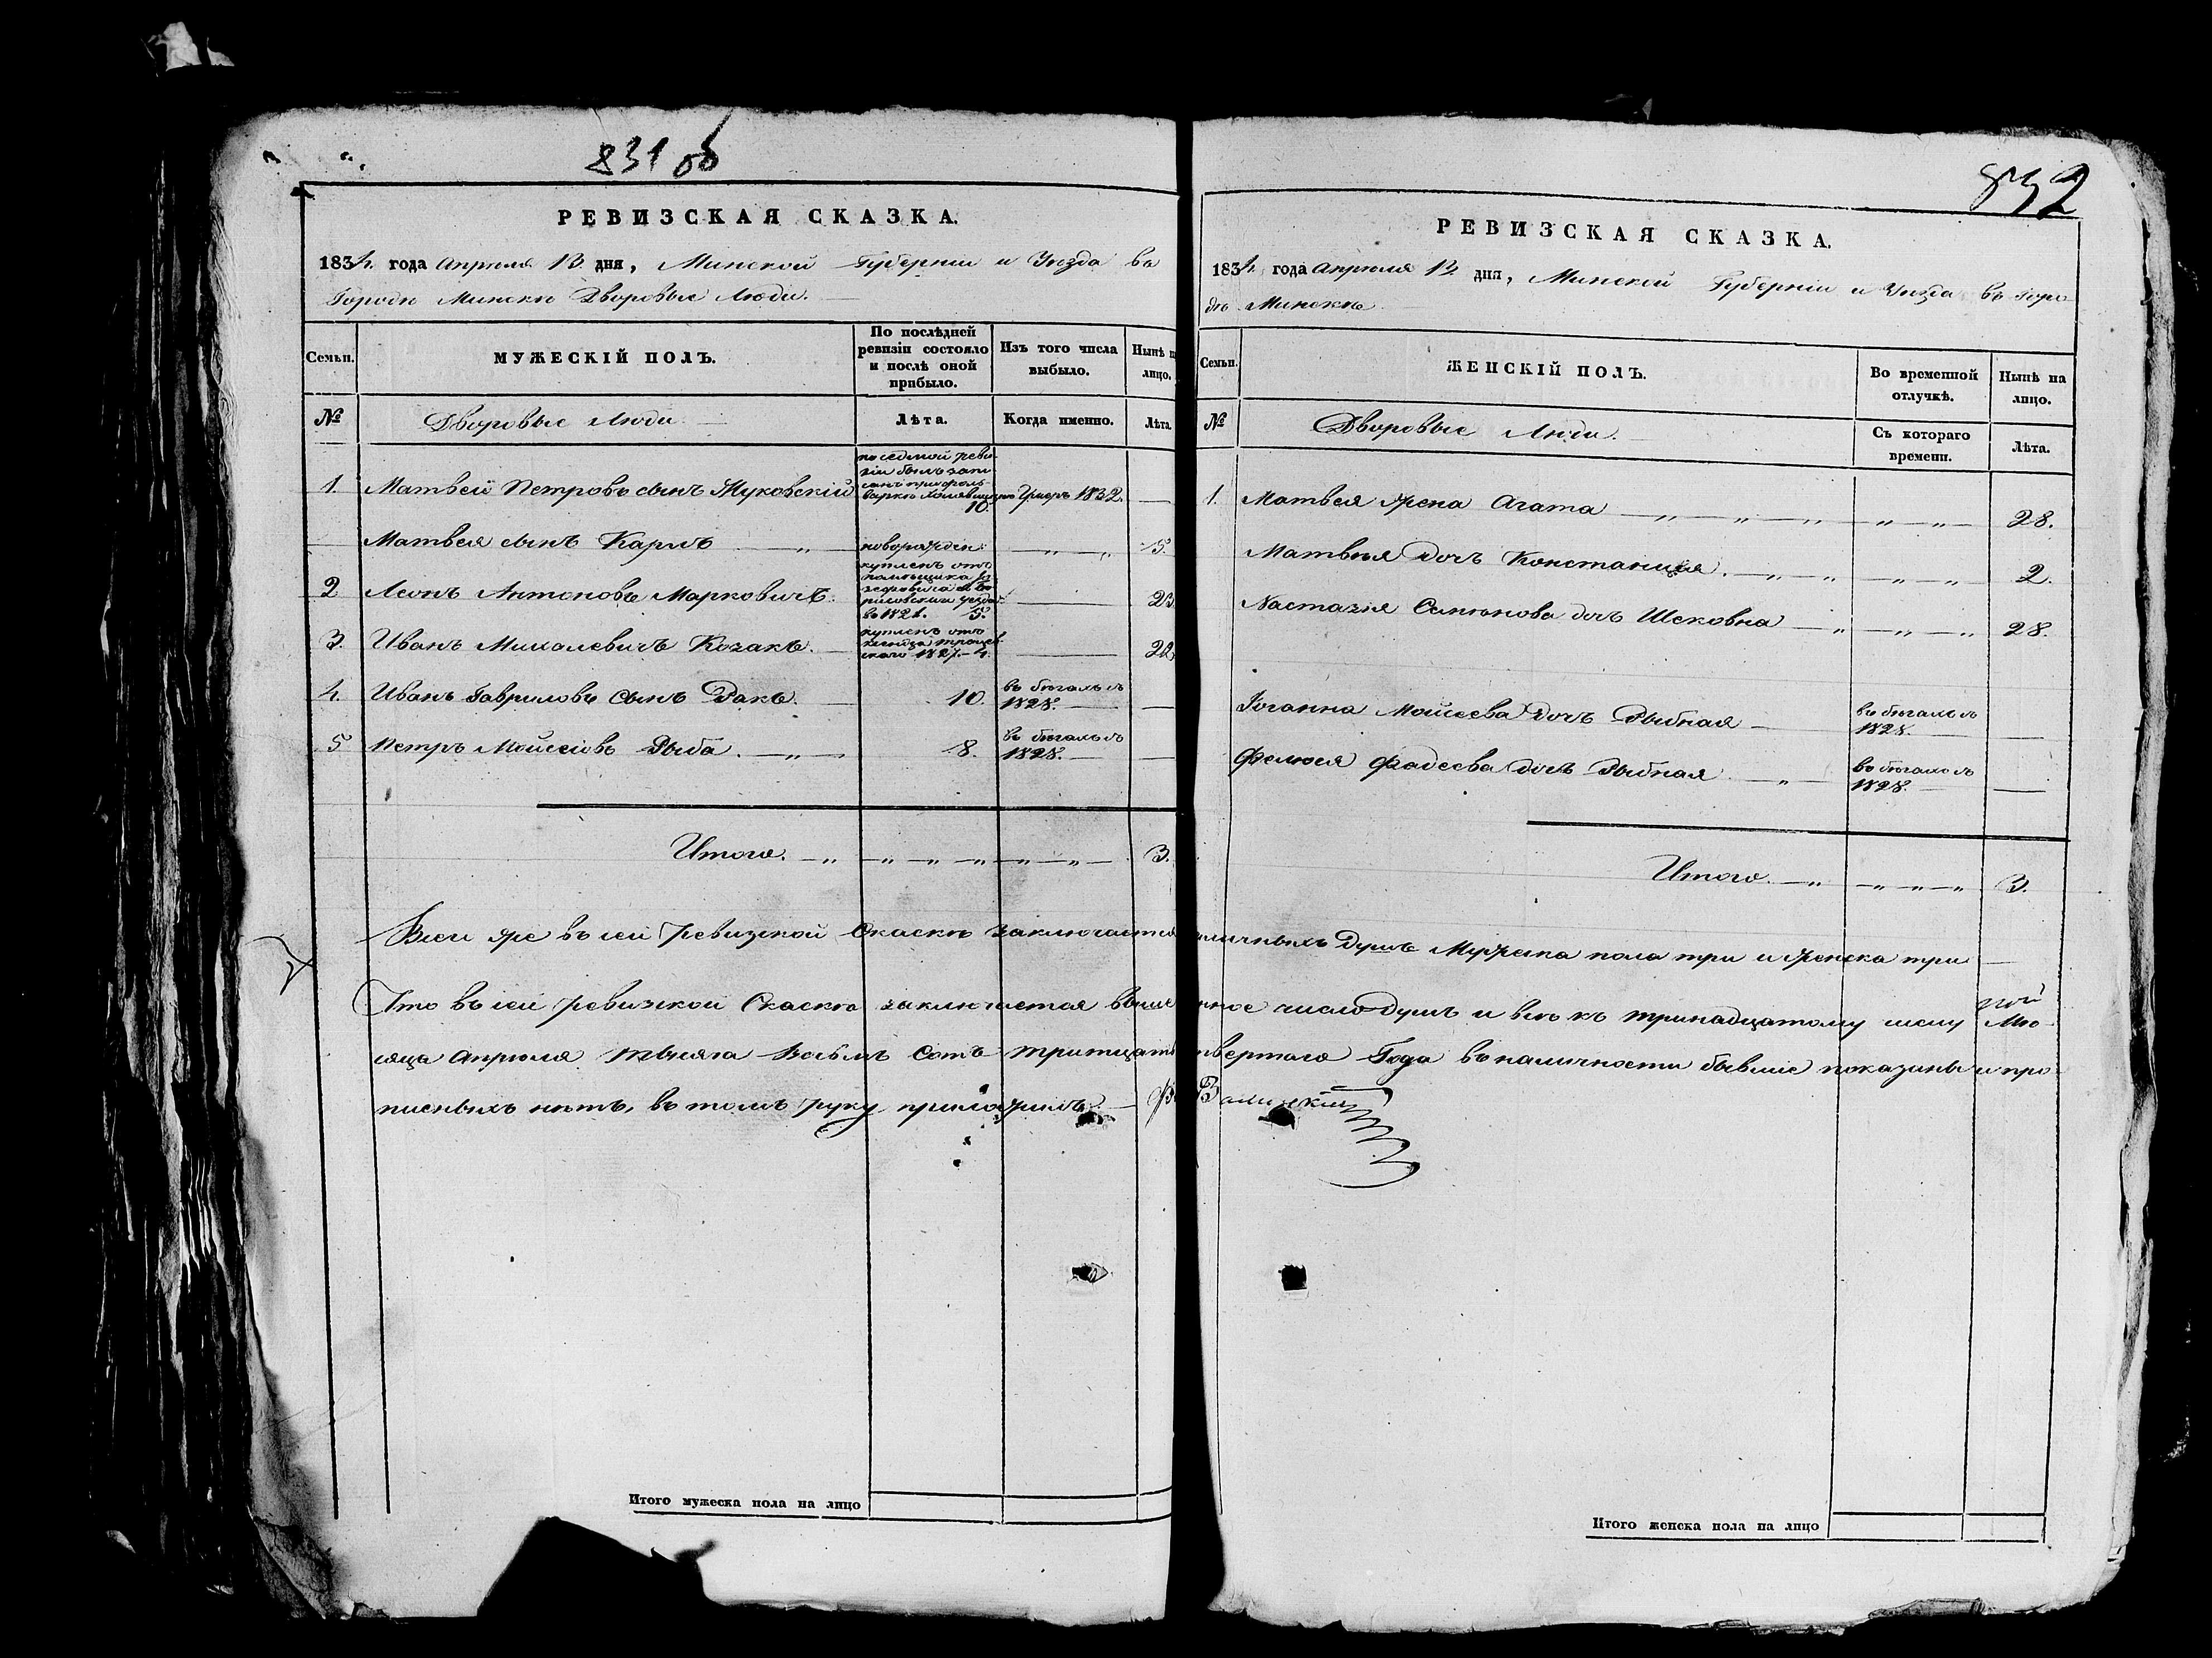 831 об
РЕВИЗСКАЯ СКАЗКА.
1834 года Апреля 13 дня, Минской Губерніи и Уезда въ
Городе Минске Дворовые Люди.
Семьи.
МУЖЕСКІЙ ПОЛЪ.
По послѣдней ревизіи состояло и послѣ оной прибыло.
Изъ того числа выбыло.
Нынѣ
лицо.
№
Дворовые Люди
Лѣта.
Когда именно.
Лѣта.
1. Матвей Петровъ сынъ Жуковскій
по седмой реви-
зіи былъ запи-
санъ при фоль-
варке
10.
Умеръ 1832.
Матвея сынъ Карлъ
новорожден:
5.
2 Леонъ Антоновъ Марковичъ.
купленъ отъ
помещика
рисовскомъ уезде
въ 1821. 5.
23
3. Иванъ Михалевичъ Козакъ.
купленъ отъ
1827.- 4.
22
4. Иванъ Гавриловъ сынъ Ракъ.
10.
въ бегахъ съ
1828.
5 Петръ Мойсеіовъ Рыба.
8.
въ бегахъ съ
1828.
Итого.
3.
Итого мужеска пола на лицо
832
РЕВИЗСКАЯ СКАЗКА.
1834 года Апреля 13 дня, Минской Губерніи и Уезда въ Горо-
де Минске
Семьи.
ЖЕНСКІЙ ПОЛЪ.
Во временной отлучкѣ.
Нынѣ на лицо.
№
Дворовые Люди.
Съ котораго времени.
Лѣта.
1. Матвея жена Агата
28.
Матвея дочъ Констанция.
2.
Настазія Семюнова дочъ Шековна
28.
Іоганна Мойсеева дочъ Рыбная
въ бегахъ съ
1828.
Фелюся Фадеева дочъ Рыбная
въ бегахъ съ
1828.
Итого.
3.
Всеи же въ сеи Ревизской Скаске заключается личныхъ Душъ Мужеска пола три и женска три
Что въ сеи Ревизской Скаске заключается выше нное число душъ и все къ тринадцатому числу Ме-
сяца Апреля Тысяча Восьмъ Сотъ тритцать твертаго Года въ наличности бывшіе показаны и про-
писныхъ нетъ, въ томъ руку приложилъ
Итого женска пола на лицо